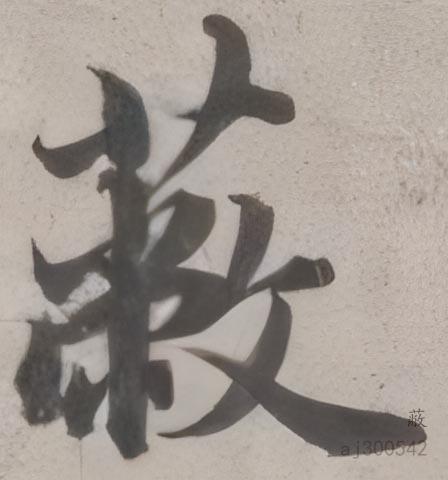 蔽
蔽
aj300542